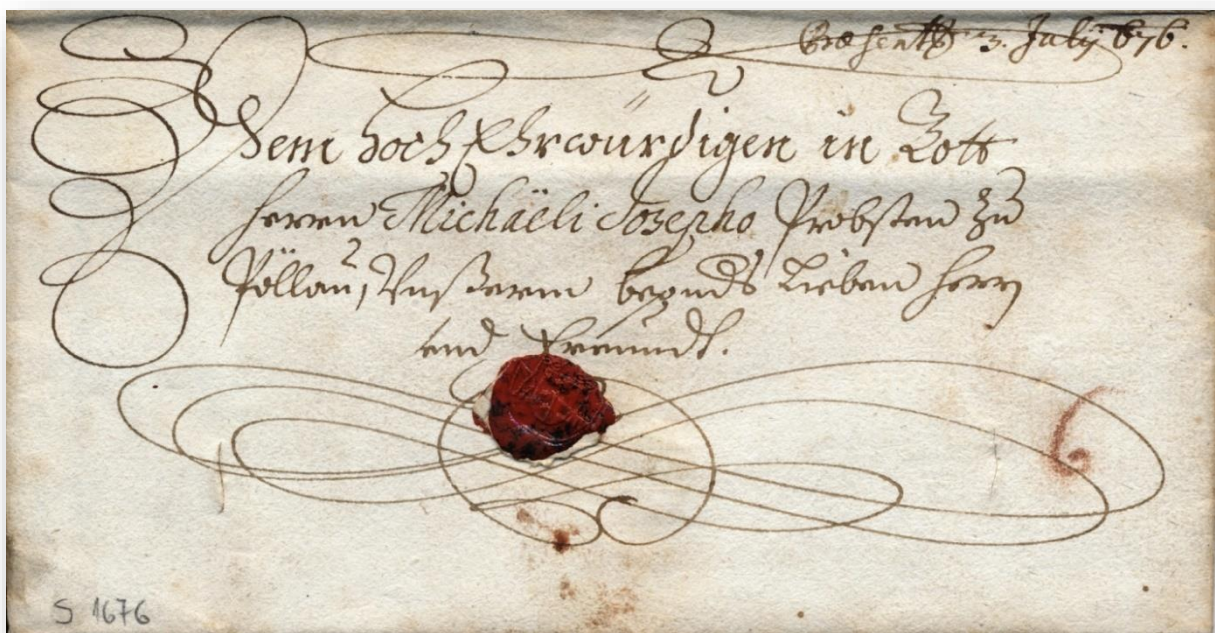 Præsent. 3. Julij 676.
Dem Hoch Ehrwürdigen in Gott
Herrn Michaëli Josepho Probsten zu
Pöllau, Unßerm besonders Lieben Herrn
und Freundt.
6
S 1676